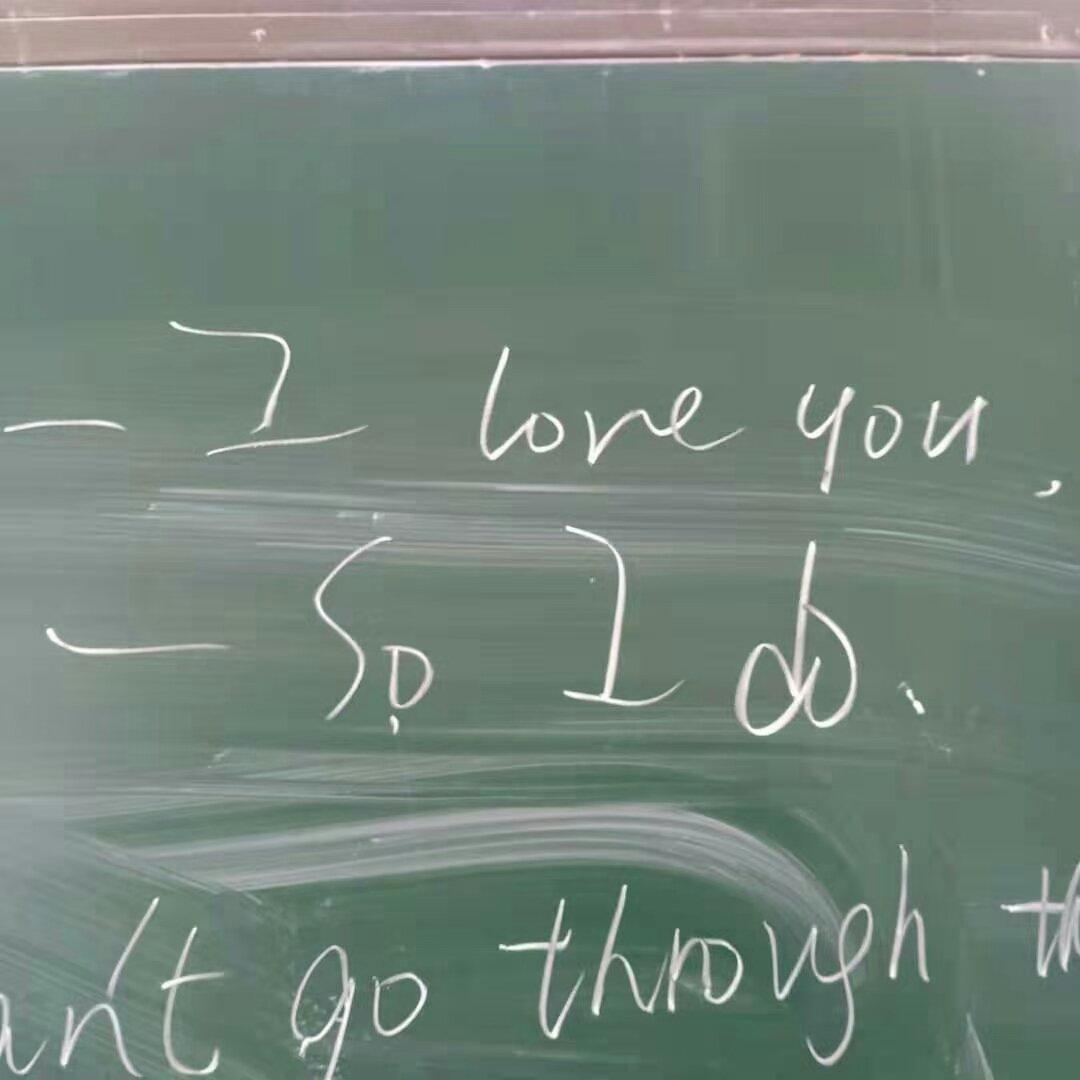 — I love you,
— So I do.
can't go through